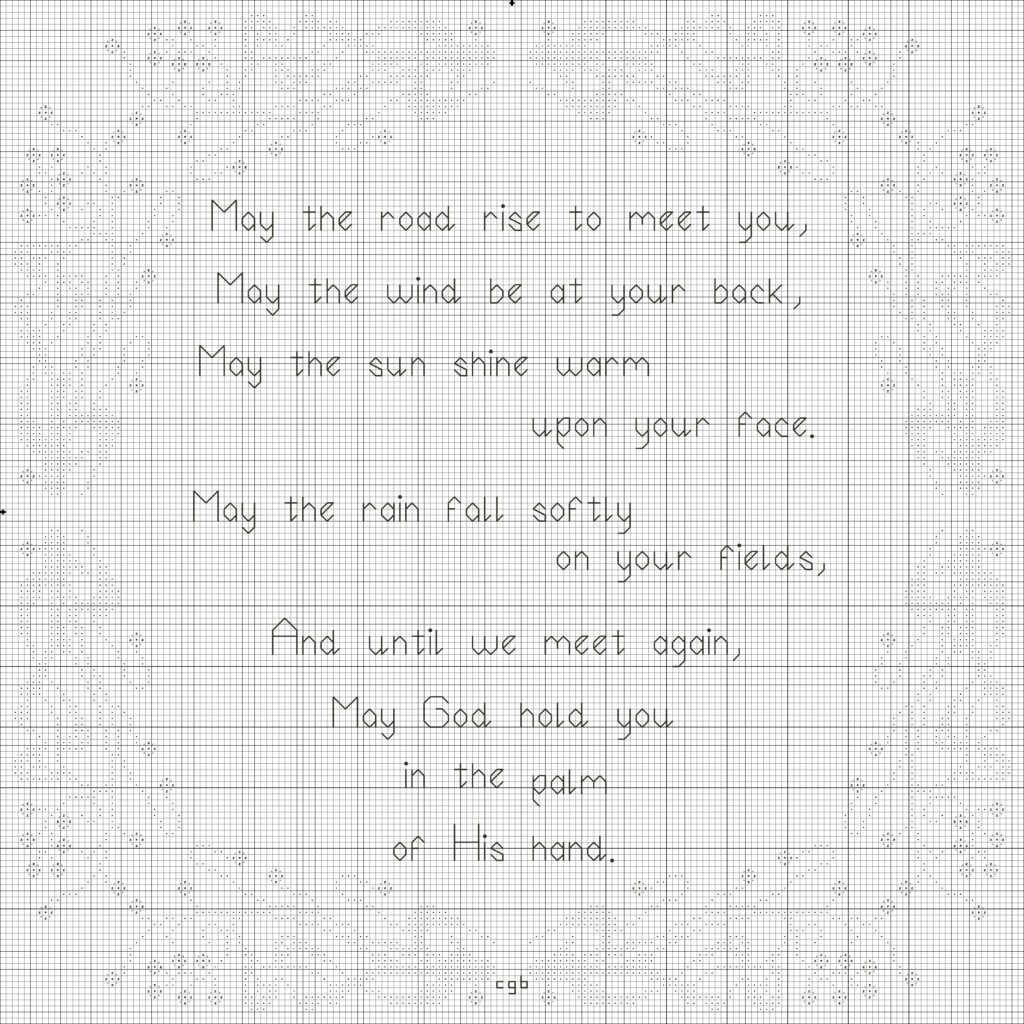 May the road rise to meet you,
May the wind be at your back,
May the sun shine warm
upon your face.
May the rain fall softly
on your fields,
And until we meet again,
May God hold you
in the palm
of His hand.
cgb